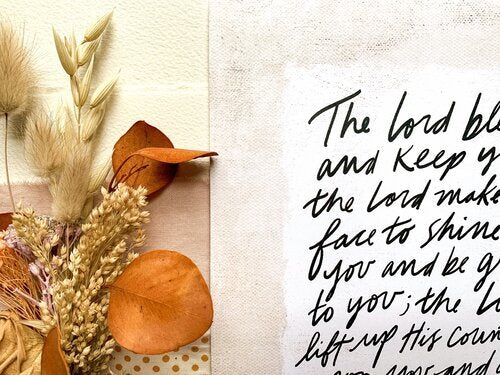 The Lord ble
and Keep y
the Lord make
face to shine
you and be g
to you; the L
lift up His Coun
you and